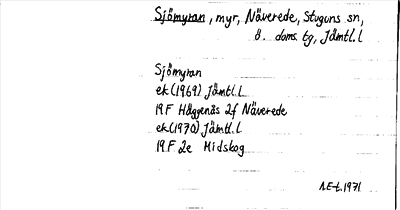 Sjömyran, myr, Näverede, Stuguns sn,
ö. doms. tg, Jämtl. l
Sjömyran
ek (1969) Jämtl. l
19 F Häggenås 2f Näverede
ek (1970) Jämtl. l
19 F 2e Midskog
1971